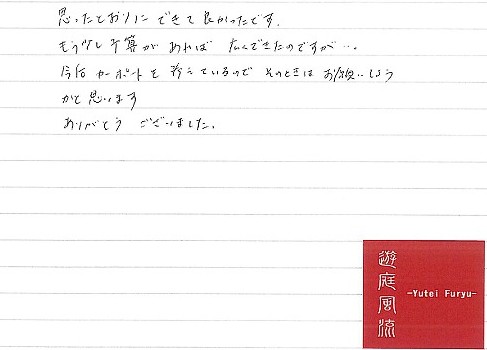 思ったとおりにできて良かったです。
もう少し予算があれば 広くできたのですが…。
今后カーポートを考えているので そのときは お願いしよう
かと思います
ありがとう ございました。
遊庭風流
-Yutei Furyu-